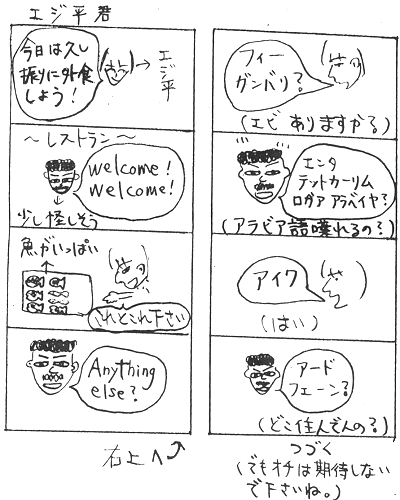 エジ平君
今日は久し
振りに外食
しよう!
→エジ平
〜レストラン〜
welcome!
welcome!
少し怪しそう
魚がいっぱい
これとこれ下さい
Anything
else?
右上へ
フィー
ガンバリ?
(エビありますか?)
エンタ
テットカーリム
ロガア アラベイヤ?
(アラビア語喋れるの?)
アイワ
(はい)
アード
フェーン?
(どこ住んでんの?)
つづく
(でもオチは期待しない
で下さいね。)